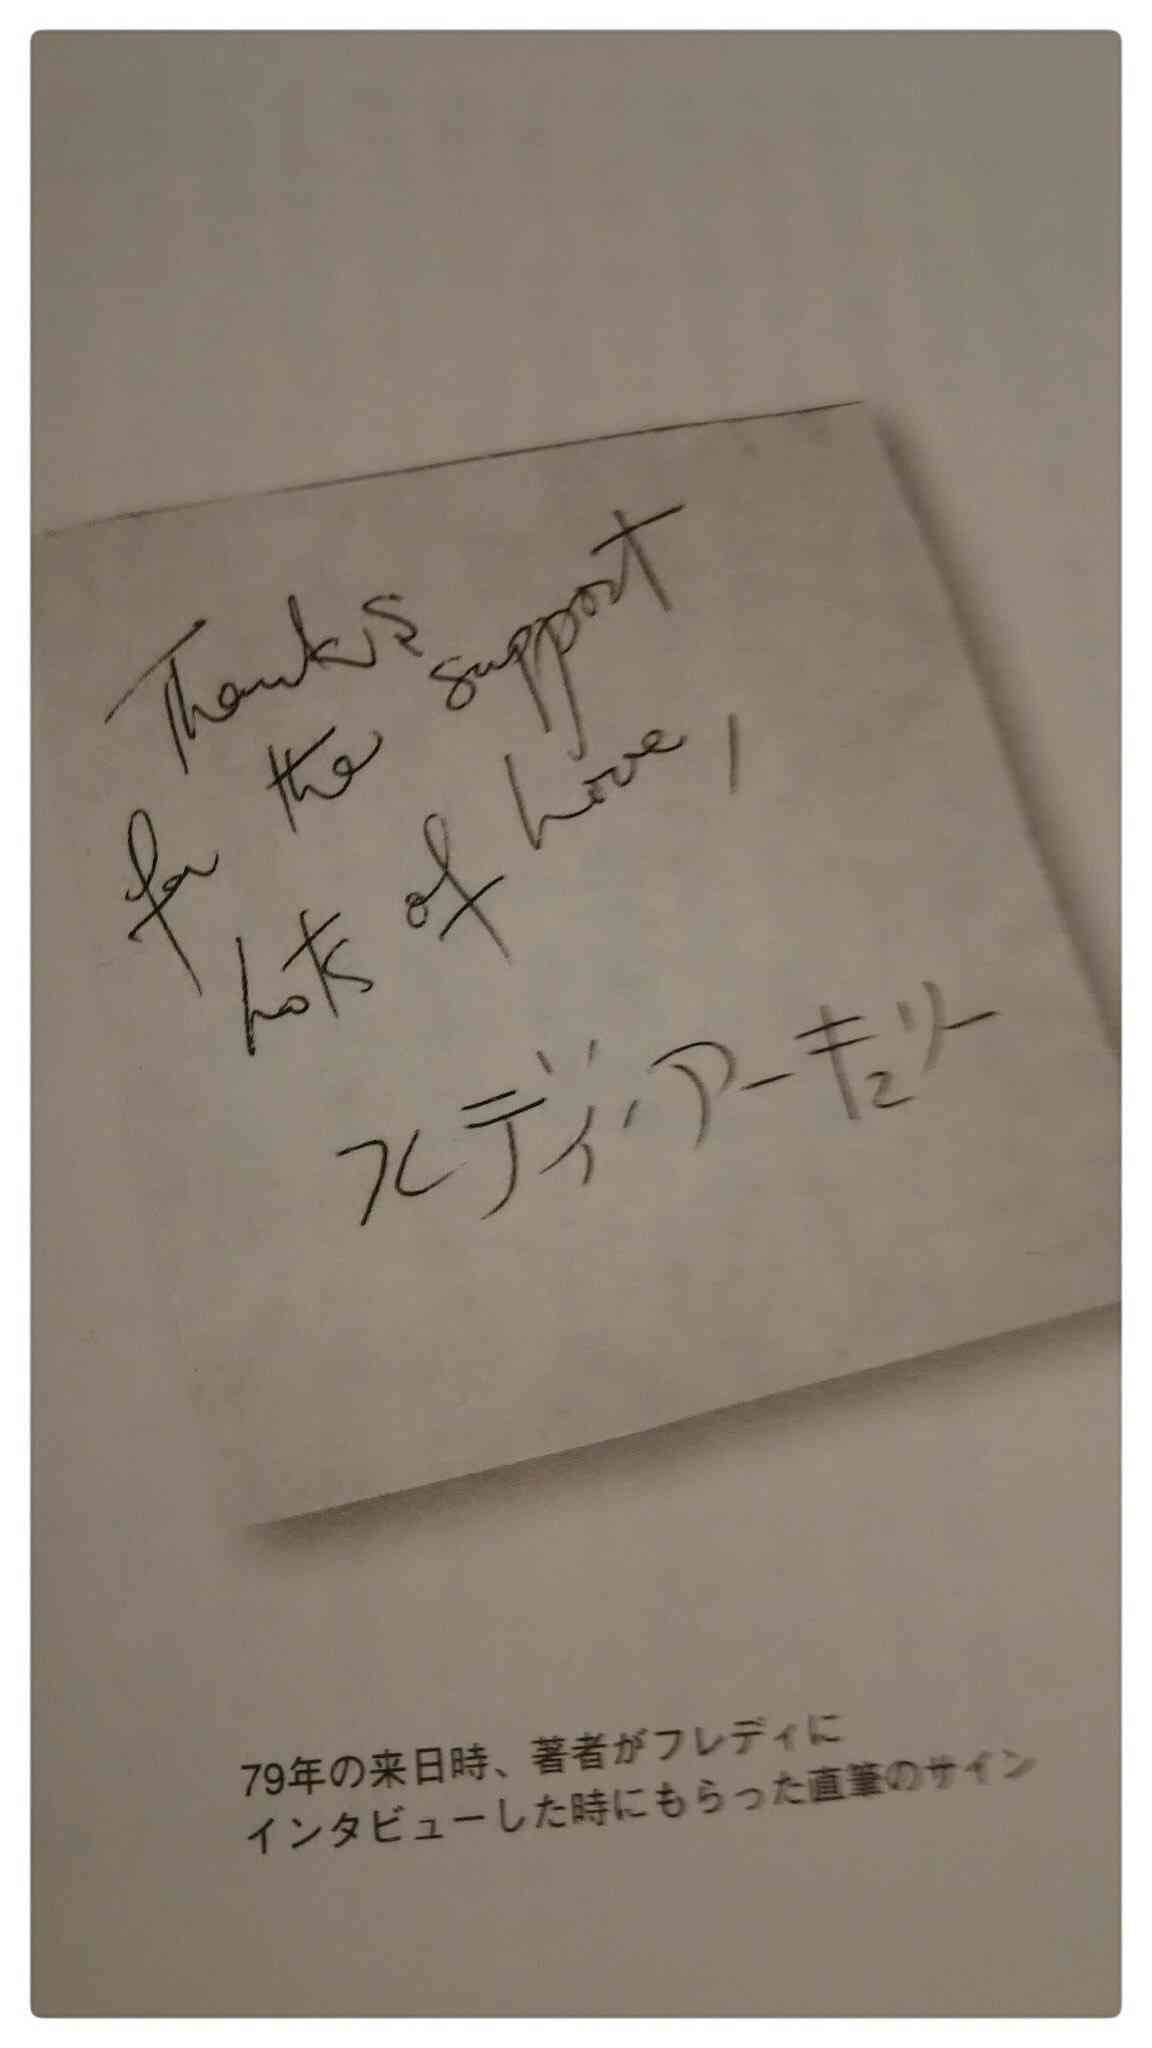 Thanks
for the support
Lots of Love,
フレディ・マーキュリー
79年の来日時、著者がフレディに
インタビューした時にもらった直筆のサイン